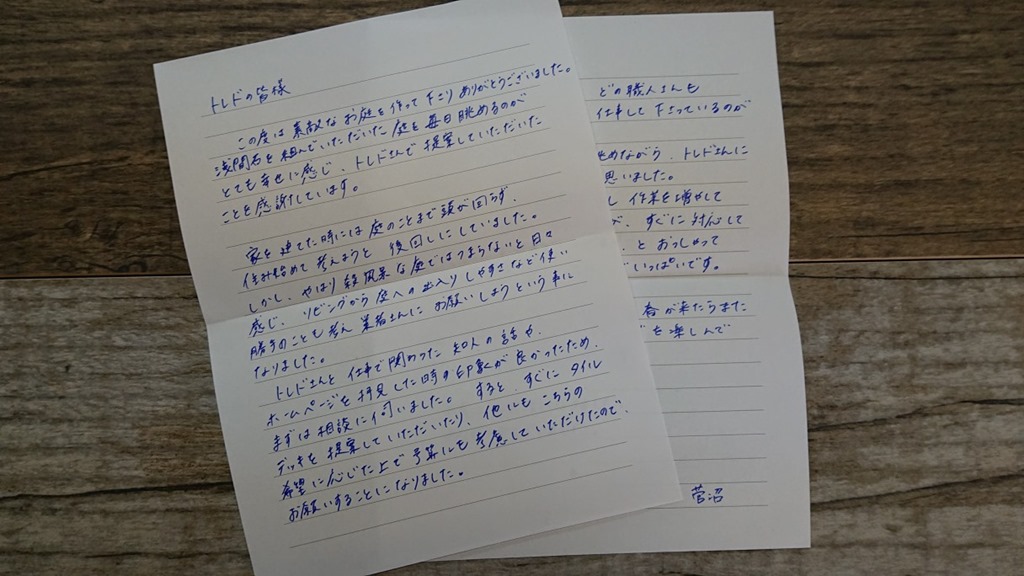 トレドの皆様
この度は素敵なお庭を作って下さりありがとうございました。
浅間石を組んでいただいた庭を毎日眺めるのが
とても幸せに感じ、トレドさんで提案していただいた
ことを感謝しています。
家を建てた時には庭のことまで頭が回らず、
住み始めて考えようと後回しにしていました。
しかし、やはり殺風景な庭ではつまらないと日々
感じ、リビングから庭への出入りしやすさなど使い
勝手のことも考え業者さんにお願いしようという事に
なりました。
トレドさんと仕事で関わった知人の話や、
ホームページを拝見した時の印象が良かったため、
まずは相談に伺いました。すると、すぐにタイル
デッキを提案していただいたり、他にもこちらの
希望に応じた上で予算にも考慮していただけたので、
お願いすることになりました。
どの職人さんも
仕事して下さっているのが
眺めながら、トレドさんに
思いました。
し作業を増やして
が、すぐに対応して
、とおっしゃって
いっぱいです。
春が来たらまた
を楽しんで
菅沼